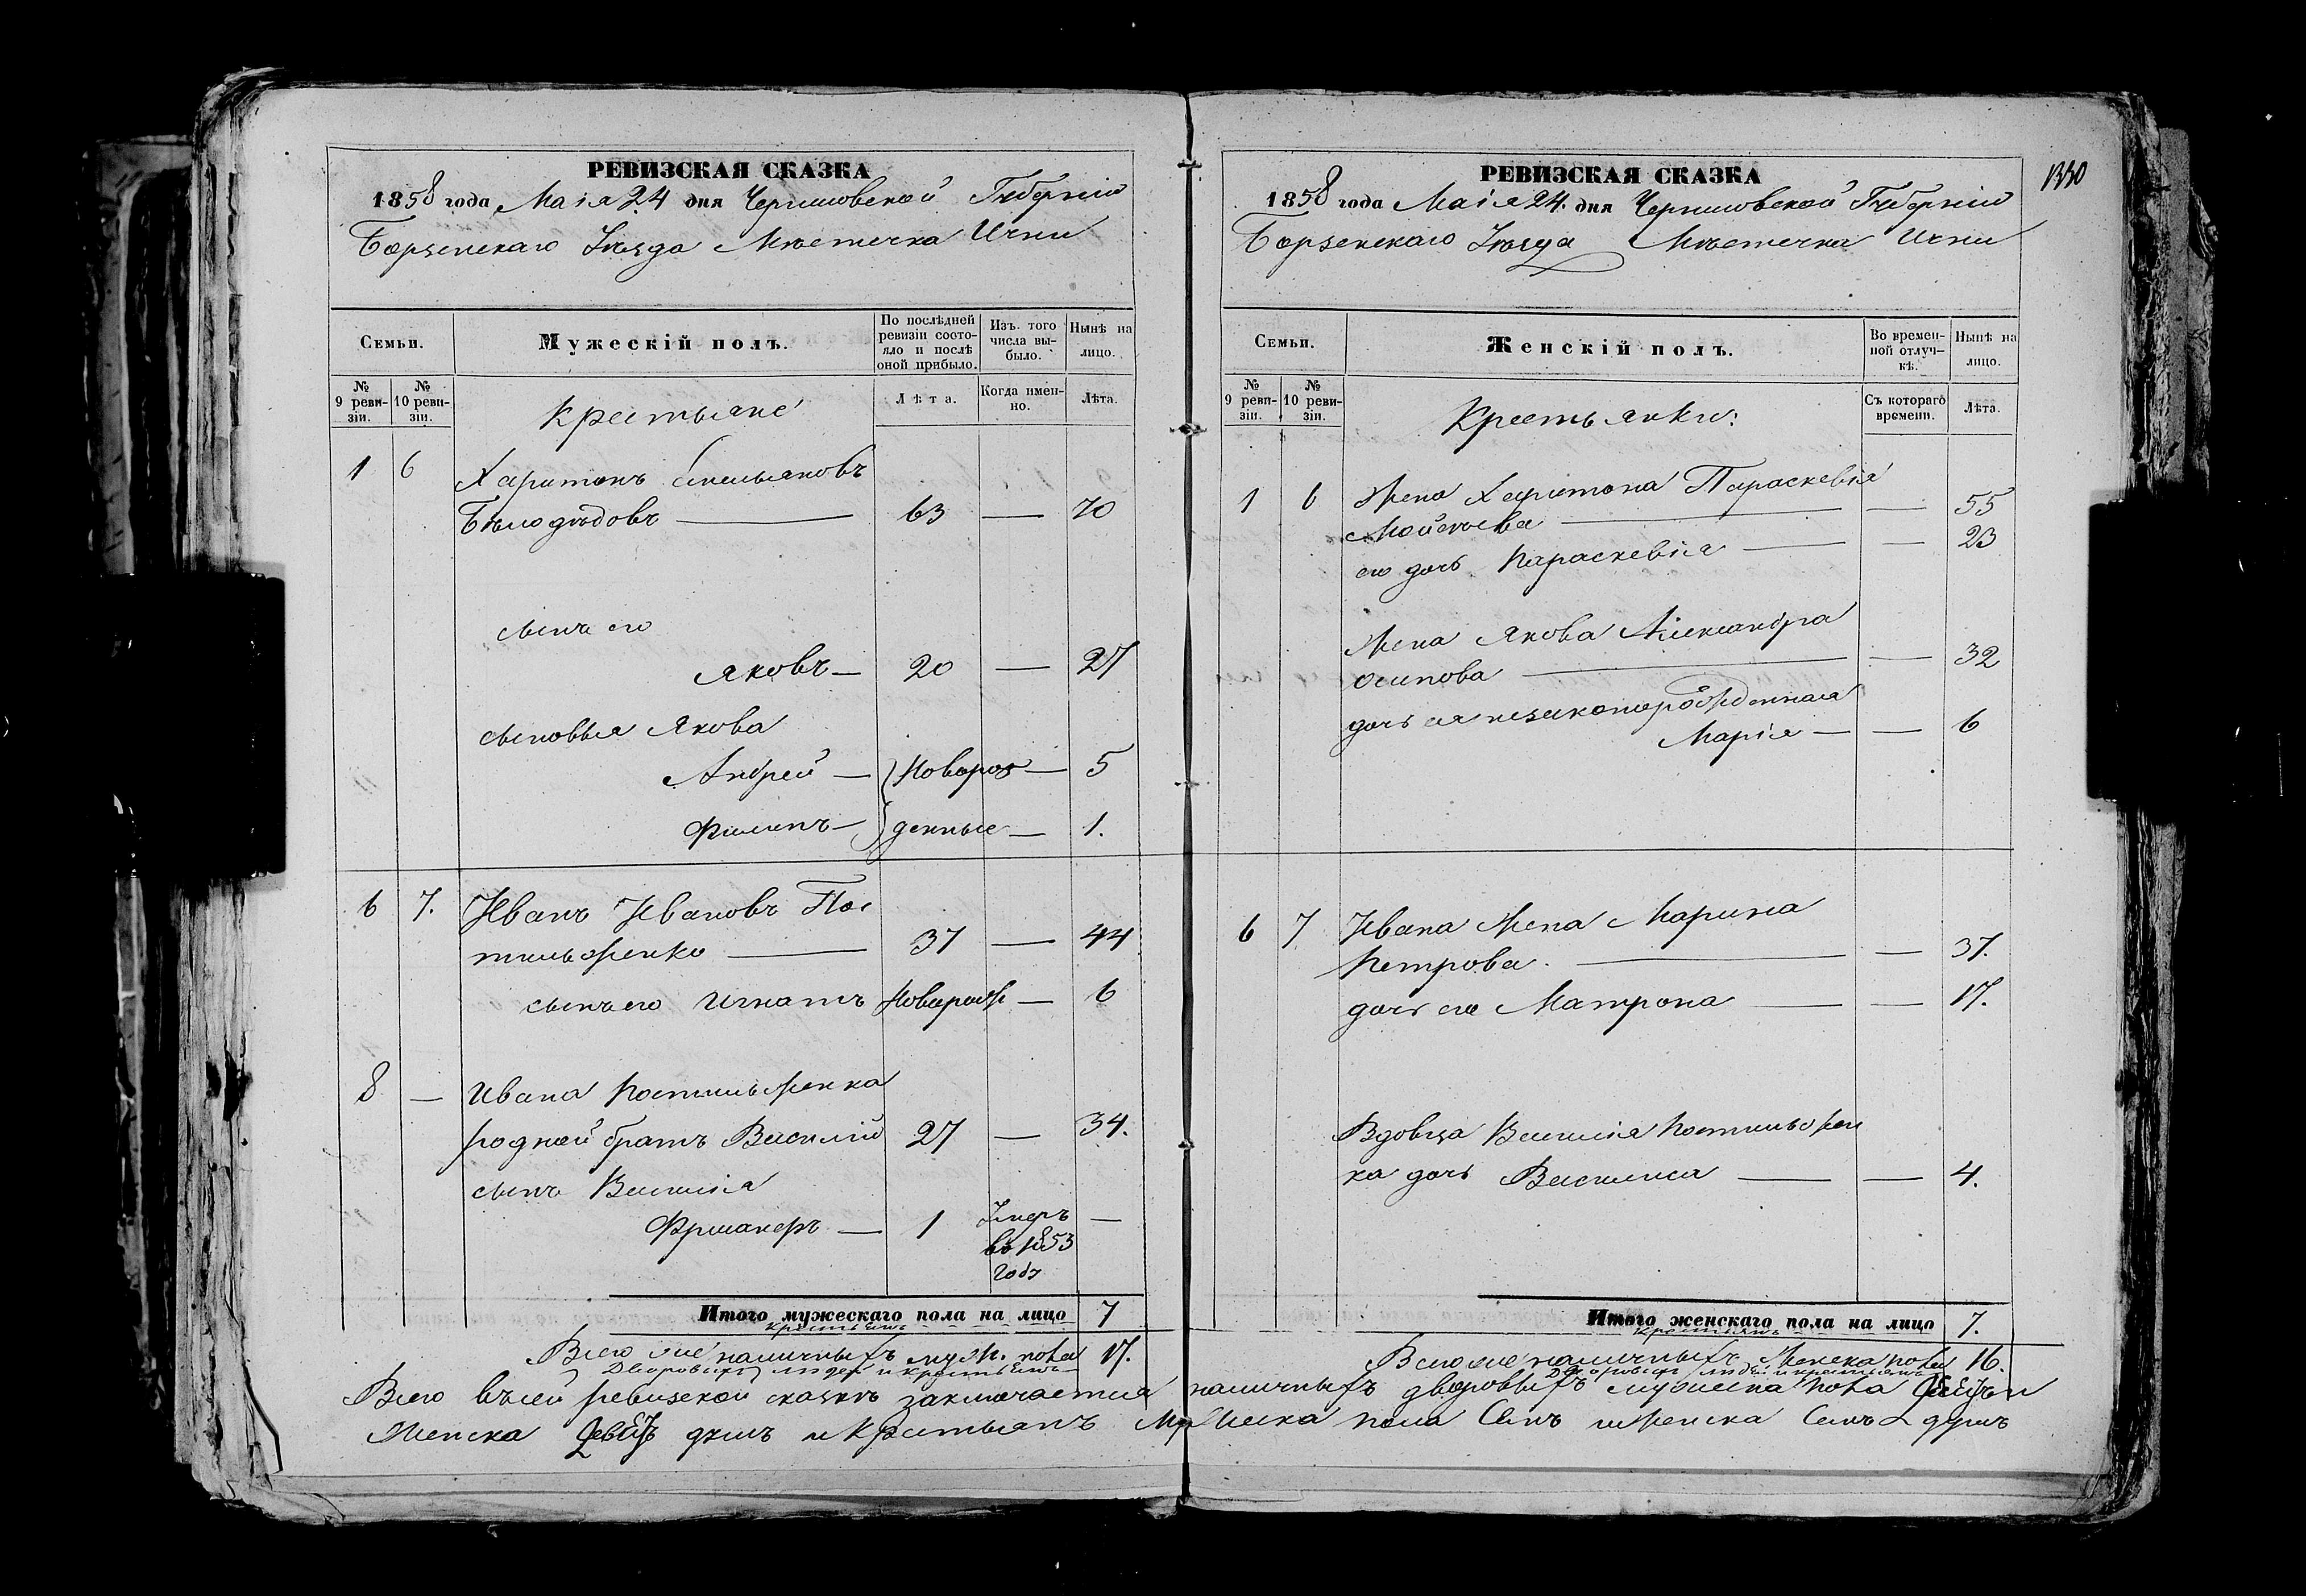 РЕВИЗСКАЯ СКАЗКА
1858 года Маія 24 дня Черниговской Губерніи
Борзенскаго Уѣзда Мѣстечка Ични
Семьи.
Мужескій полъ.
По послѣдней ревизіи состояло и послѣ оной прибыло.
Изъ того числа выбыло.
Нынѣ на лицо.
№ 9 ревизіи.
№ 10 ревизіи.
Крестьяне
Лѣта.
Когда именно.
Лѣта.
1 6 Харитонъ Емельяновъ
Бѣлодѣдовъ — 63 — 70
сынъ его
Яковъ — 20 — 27
сыновья Якова
Андрей — Новорож — 5
Филипъ — денные — 1.
6 7. Иванъ Ивановъ Пос
тильженко — 37 — 44
сынъ его Игнатъ Новорож — 6
8 — Ивана Постильженка
родной братъ Василій 27 — 34.
сынъ Василія
— 1 Умеръ —
въ 1853
году
Итого мужескаго пола на лицо 7
крестьянъ
Всего же наличныхъ муж. пола 17.
Дворовыхъ людей и крестьянъ
РЕВИЗСКАЯ СКАЗКА
1330
1858 года Маія 24. дня Черниговской Губерніи
Борзенскаго Уѣзда Мѣстечка Ични
Семьи.
Женскій полъ.
Во временной отлучкѣ.
Нынѣ на лицо.
№ 9 ревизіи.
№ 10 ревизіи.
Крестьянки:
Съ котораго времени.
Лѣта.
1 6 Жена Харитона Параскевія
Мойсѣева — — 55
его дочь Параскевія — — 23
Жена Якова Александра
Осипова — — 32
дочь ея незаконорожденная
Марія — — 6
6 7 Ивана Жена Марина
Петрова. — — 37.
дочь его Матрона — — 17.
Вдовца Василія Постильжен
ка дочь Василиса — — 4.
Итого женскаго пола на лицо 7.
крестьянъ
Всего же наличныхъ Женска пола 16.
Дворовыхъ людей и крестьянъ
Всего въ сей ревизской сказкѣ заключается наличныхъ дворовыхъ мужеска пола и
Женска душъ и Крестьянъ Мужеска пола Семь и Женска Семь душъ